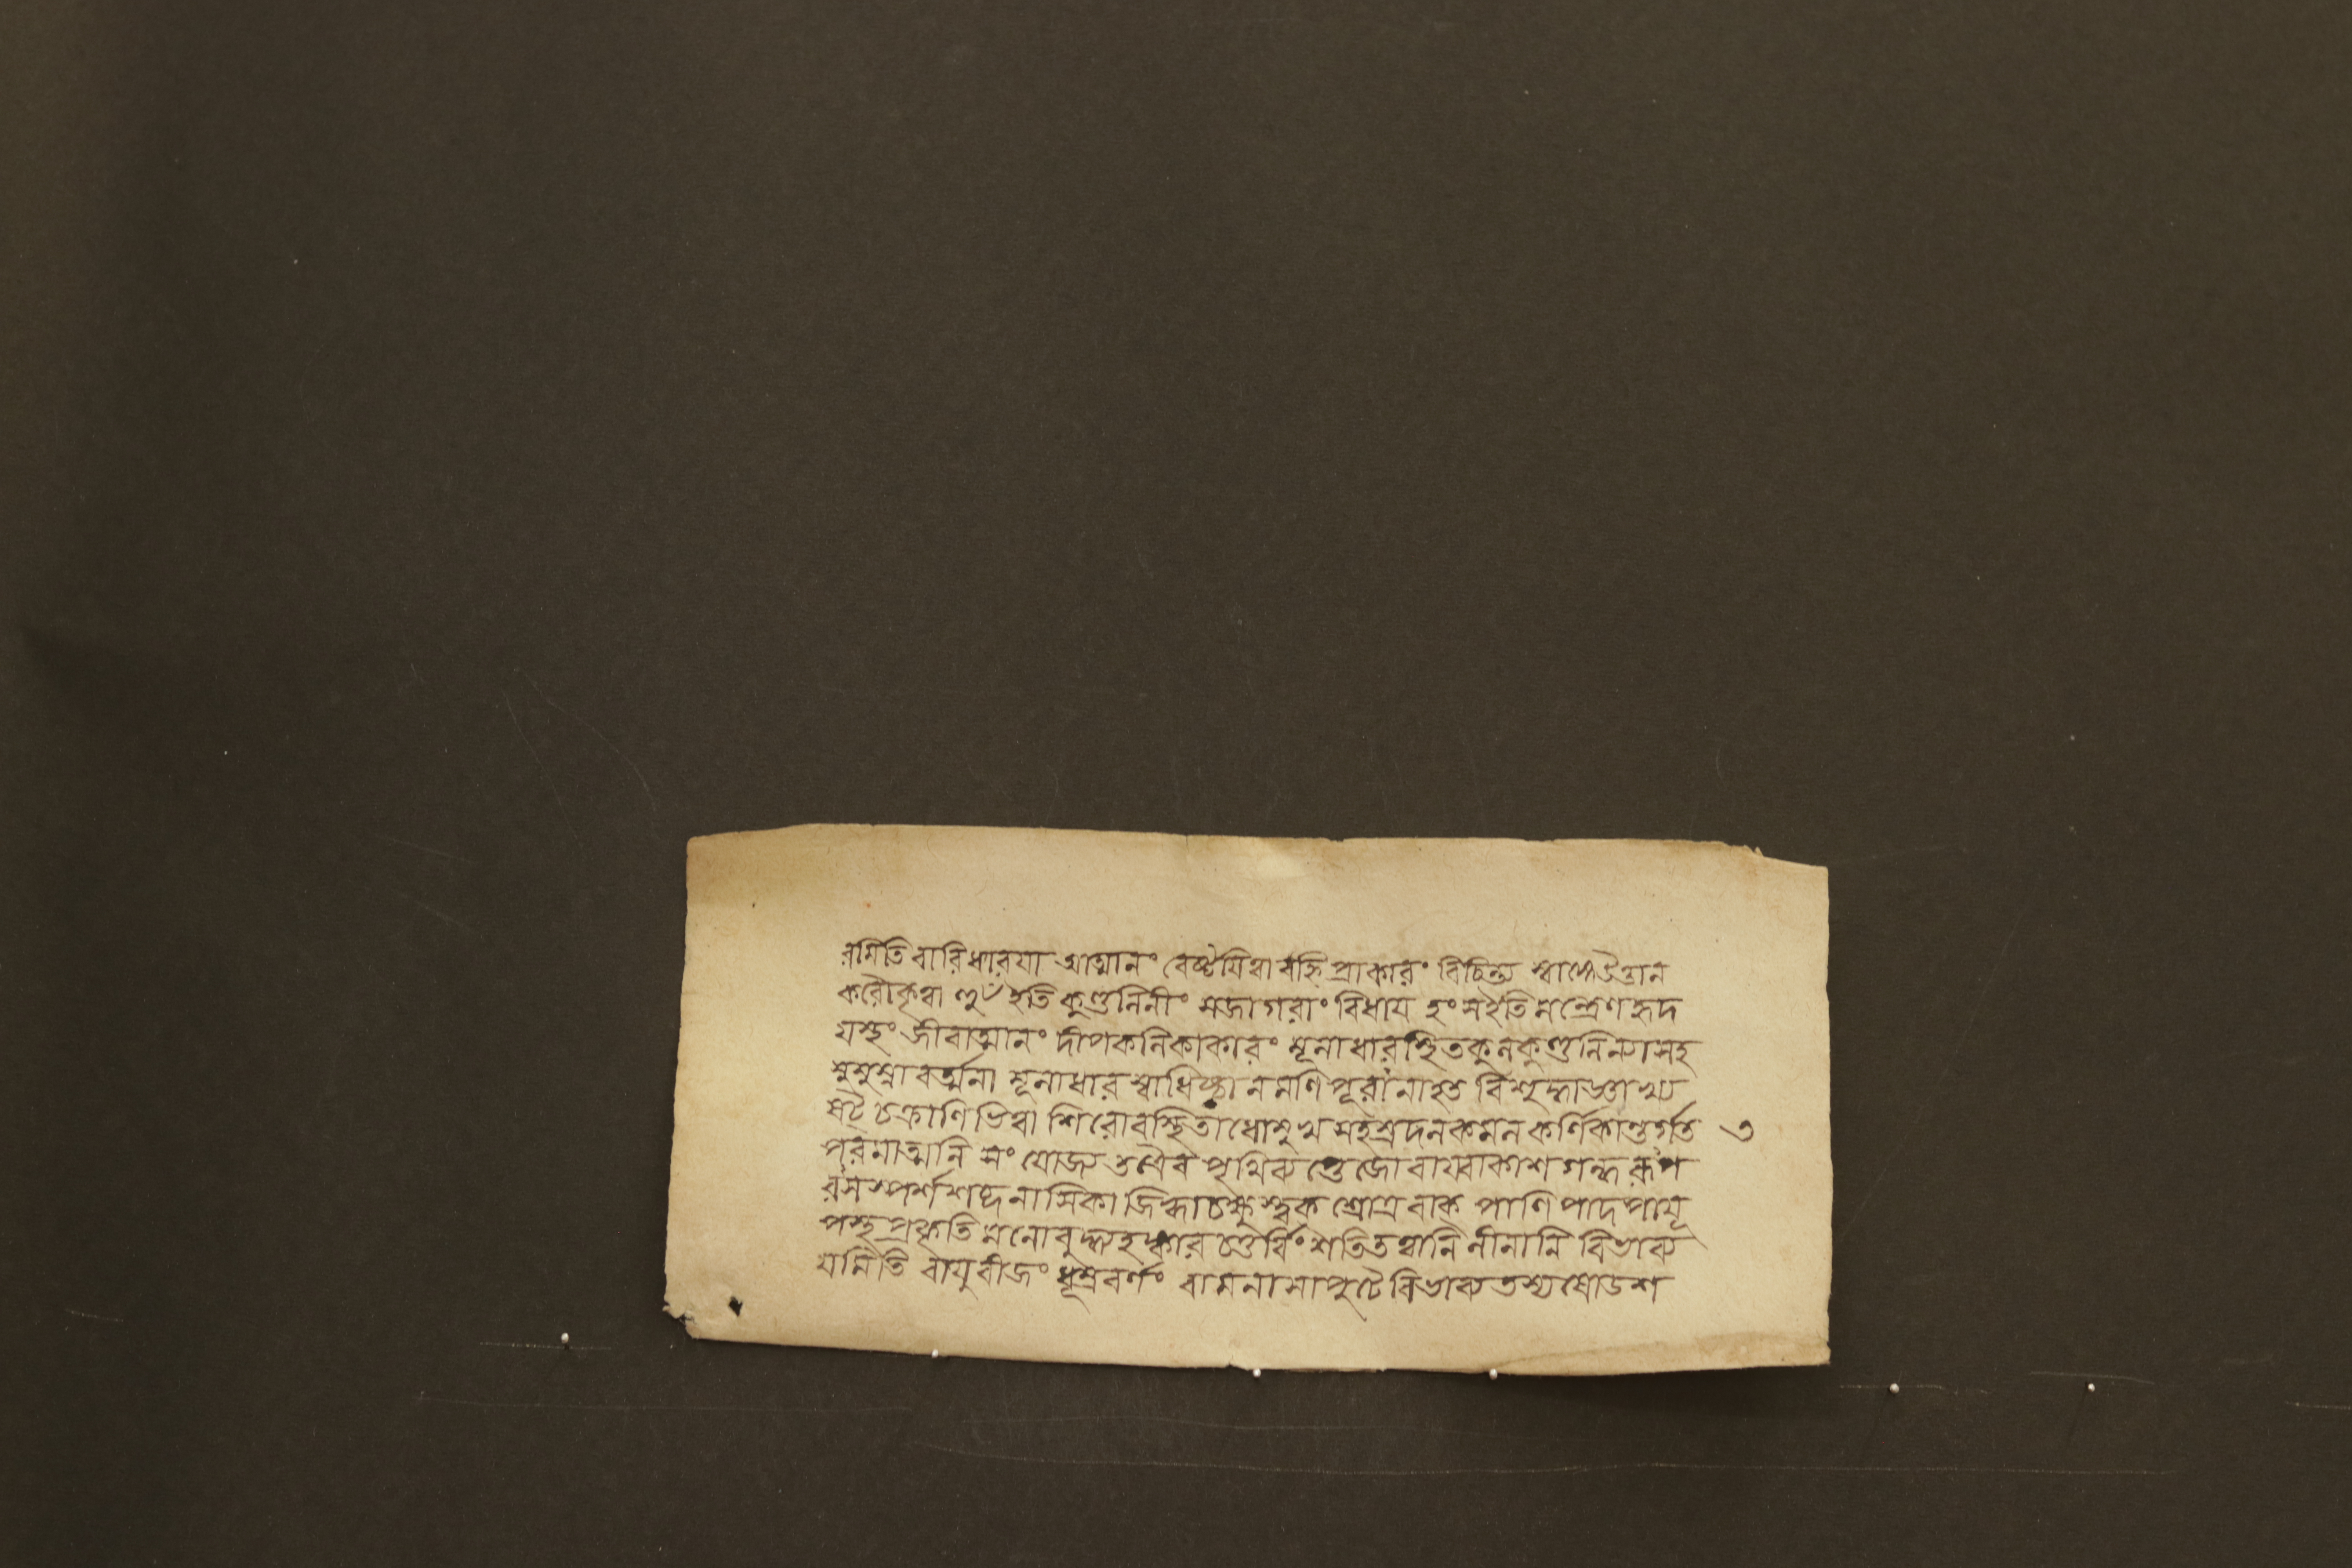 রমিতি বারিধারয়া আত্মানং বেষ্টয়িত্বা বহ্নি প্রাকারং বিচিন্ত্য স্বাঙ্কে উত্তান
করৌ কৃত্বা হুঁ ইতি কুণ্ডলিনীং সজাগরাং বিধায় হং স ইতি মন্ত্রেণ হৃদ
য়স্থং জীবাত্মানং দীপকলিকাকারং মূলাধারস্থিত কুলকুণ্ডলিন্যাসহ
সুসুম্না বর্ত্মনা মূলাধার স্বাধিষ্ঠান মণিপূরানাহত বিশুদ্ধাজ্ঞাখ্য
ষট্ চক্রাণি ভিত্বা শিরোবস্থিতাধোমুখ সহস্রদল কমল কর্ণিকান্তর্গত ৩
পরমাত্মনি সংযোজ্য তত্রৈব পৃথিব্যপ্তেজোবায়্বাকাশ গন্ধ রূপ
রস স্পর্শ শব্দ নাসিকা জিহ্বা চক্ষুস্ত্বক শ্রোত্র বাক পাণি পাদ পায়ূ
পস্থ প্রকৃতি মনোবুদ্ধ্যহঙ্কার চতুর্বিংশতি তত্বানি লীনানি বিভাব্য
যমিতি বায়ুবীজং ধূম্রবর্ণং বামনাসাপুটে বিভাব্য তস্য ষোডশ